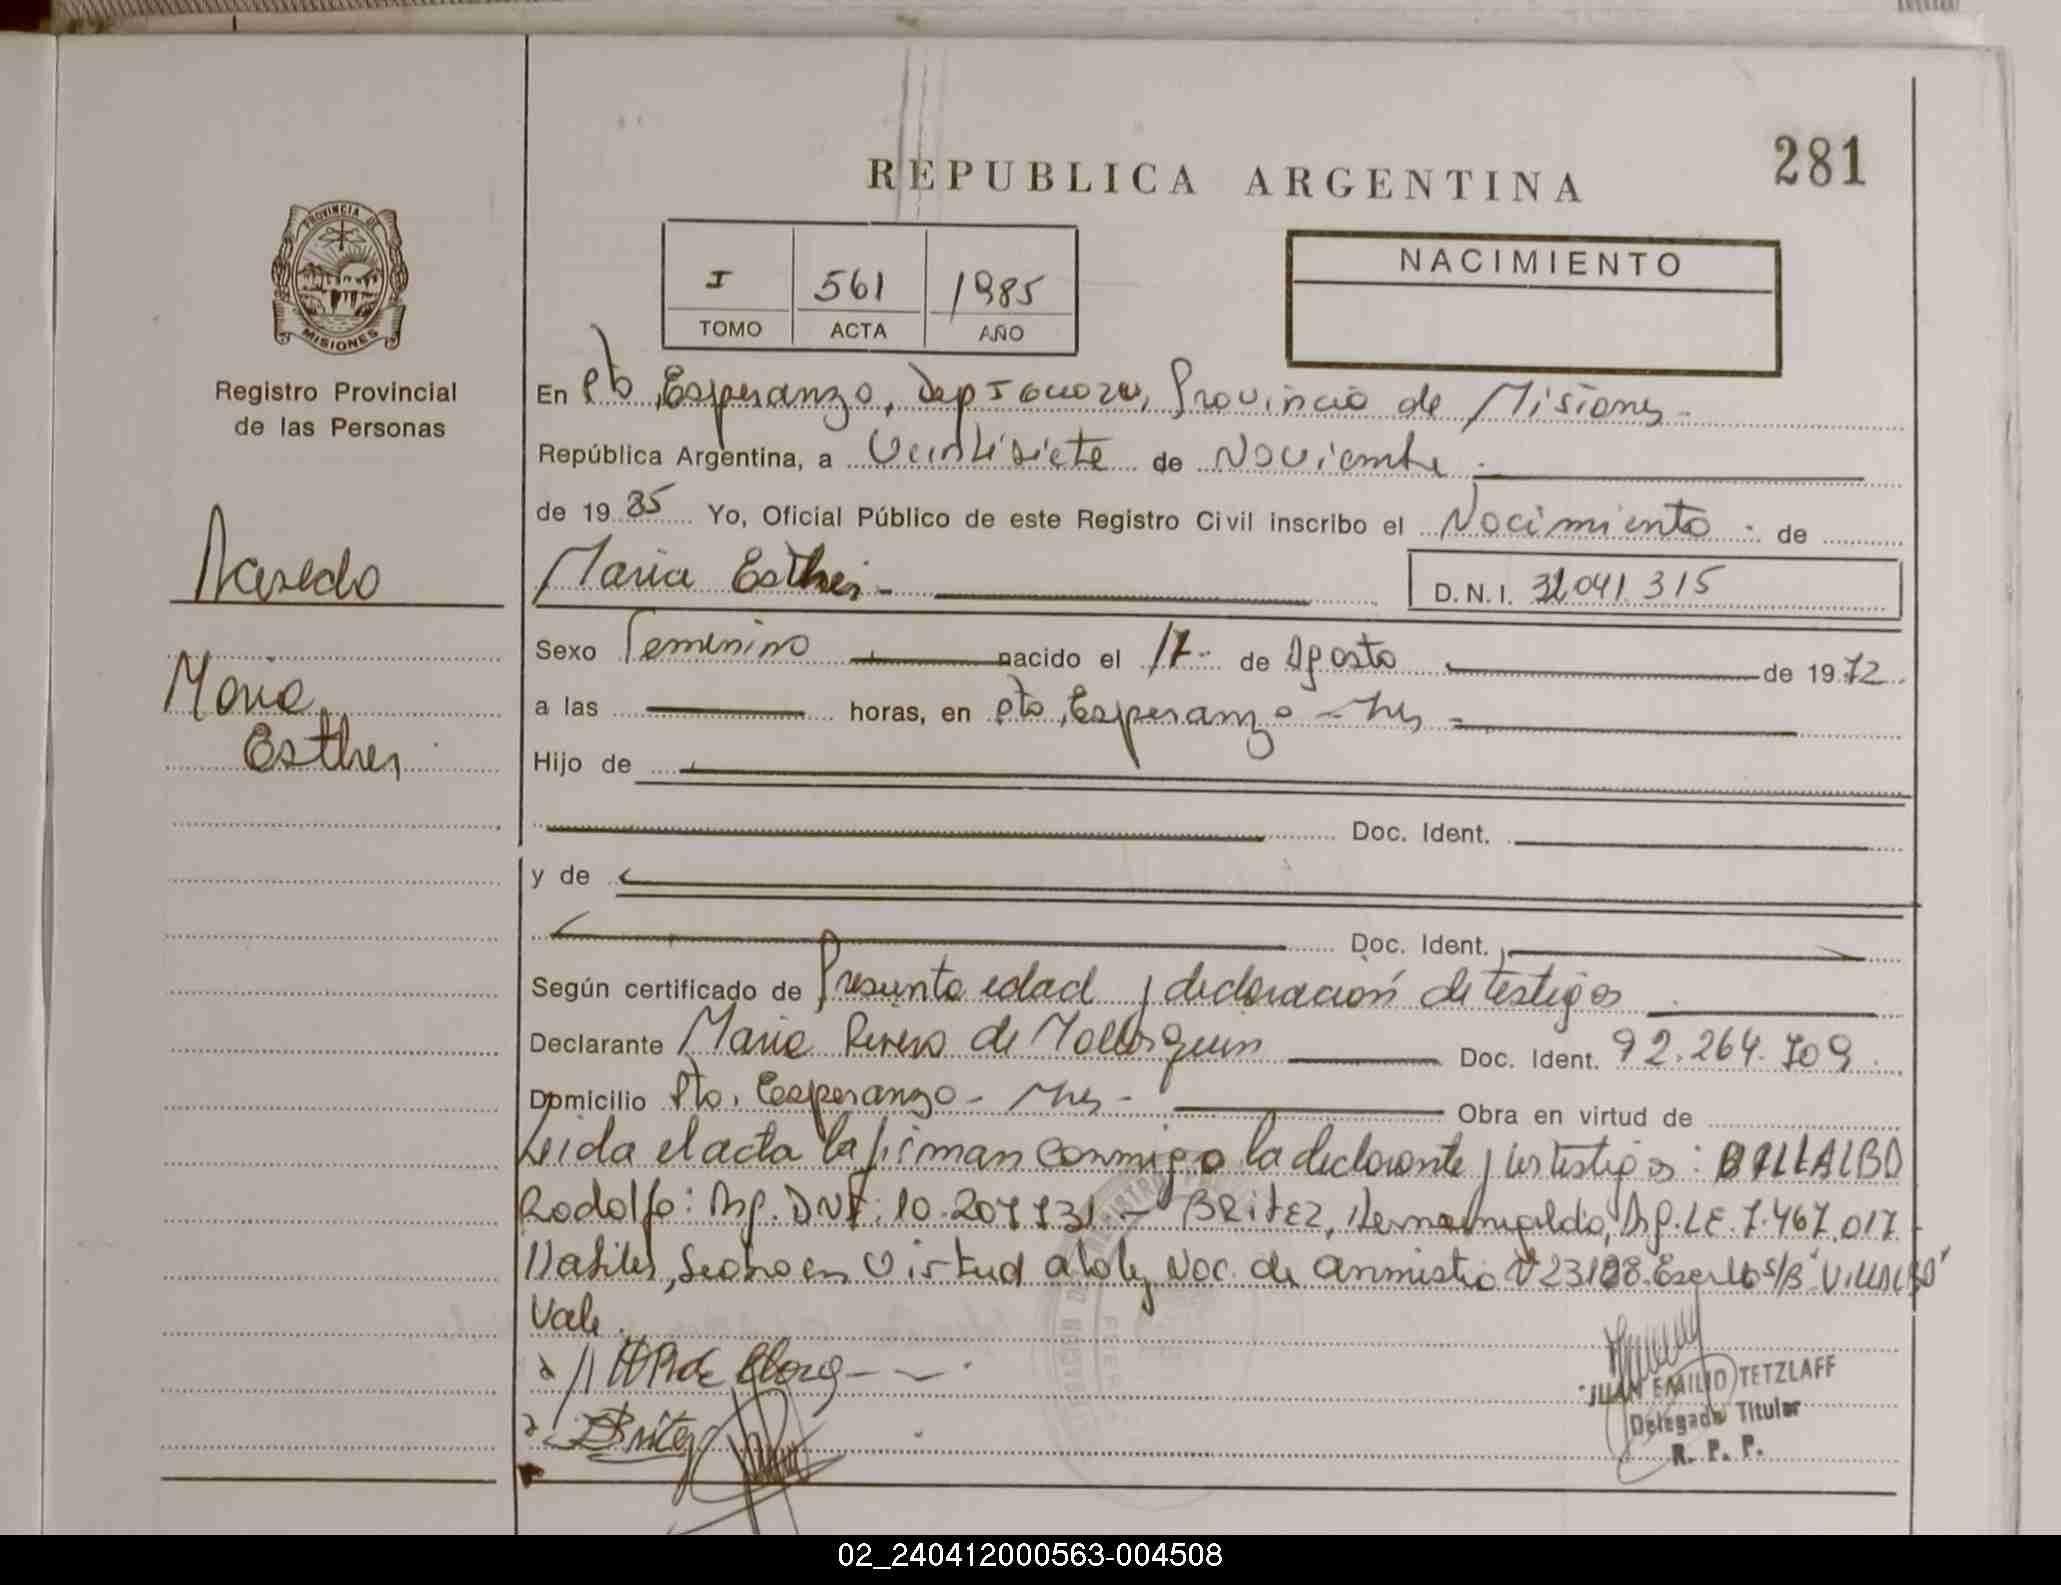 281
REPUBLICA ARGENTINA
PROVINCIA DE
MISIONES
Registro Provincial
de las Personas
I 561 1985
TOMO ACTA AÑO
NACIMIENTO
En Pto, Esperanza, Dep Iguazu, Provincia de Misiones
República Argentina, a Veintisiete de Noviembre
de 19 85 Yo, Oficial Público de este Registro Civil inscribo el Nacimiento de
Maria Esther
D.N.I. 041 315
Acevedo
Maria
Esther
Sexo Femenino nacido el 17 de Agosto de 19 72
a las horas, en Pto, Esperanza - Mnes
Hijo de
Doc. Ident.
y de
Doc. Ident.
Según certificado de Presunta edad y declaración de testigos
Declarante Maria Doc. Ident. 92.264.709
Domicilio Pto. Esperanza - Mnes - Obra en virtud de
Leida el acta la firman conmigo la declarante y los testigos:
Rodolfo: Arg. DNI: 10.207 731 - BRITEZ, Hermenegildo, Arg. L.E. 7.467.017
en Virtud a la ley Nac. de amnistia S/B "VILLALBO"
Vale
Britez
JUAN EMILIO TETZLAFF
Delegado Titular
R. P. P.
02_240412000563-004508